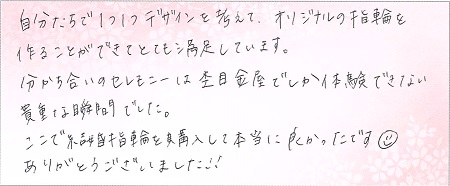 自分たちで1つ1つデザインを考えて、オリジナルの指輪を
作ることができてとても満足しています。
分かち合いのセレモニーは杢目金屋でしか体験できない
貴重な瞬間でした。
ここで結婚指輪を購入して本当に良かったです☺
ありがとうございました!!